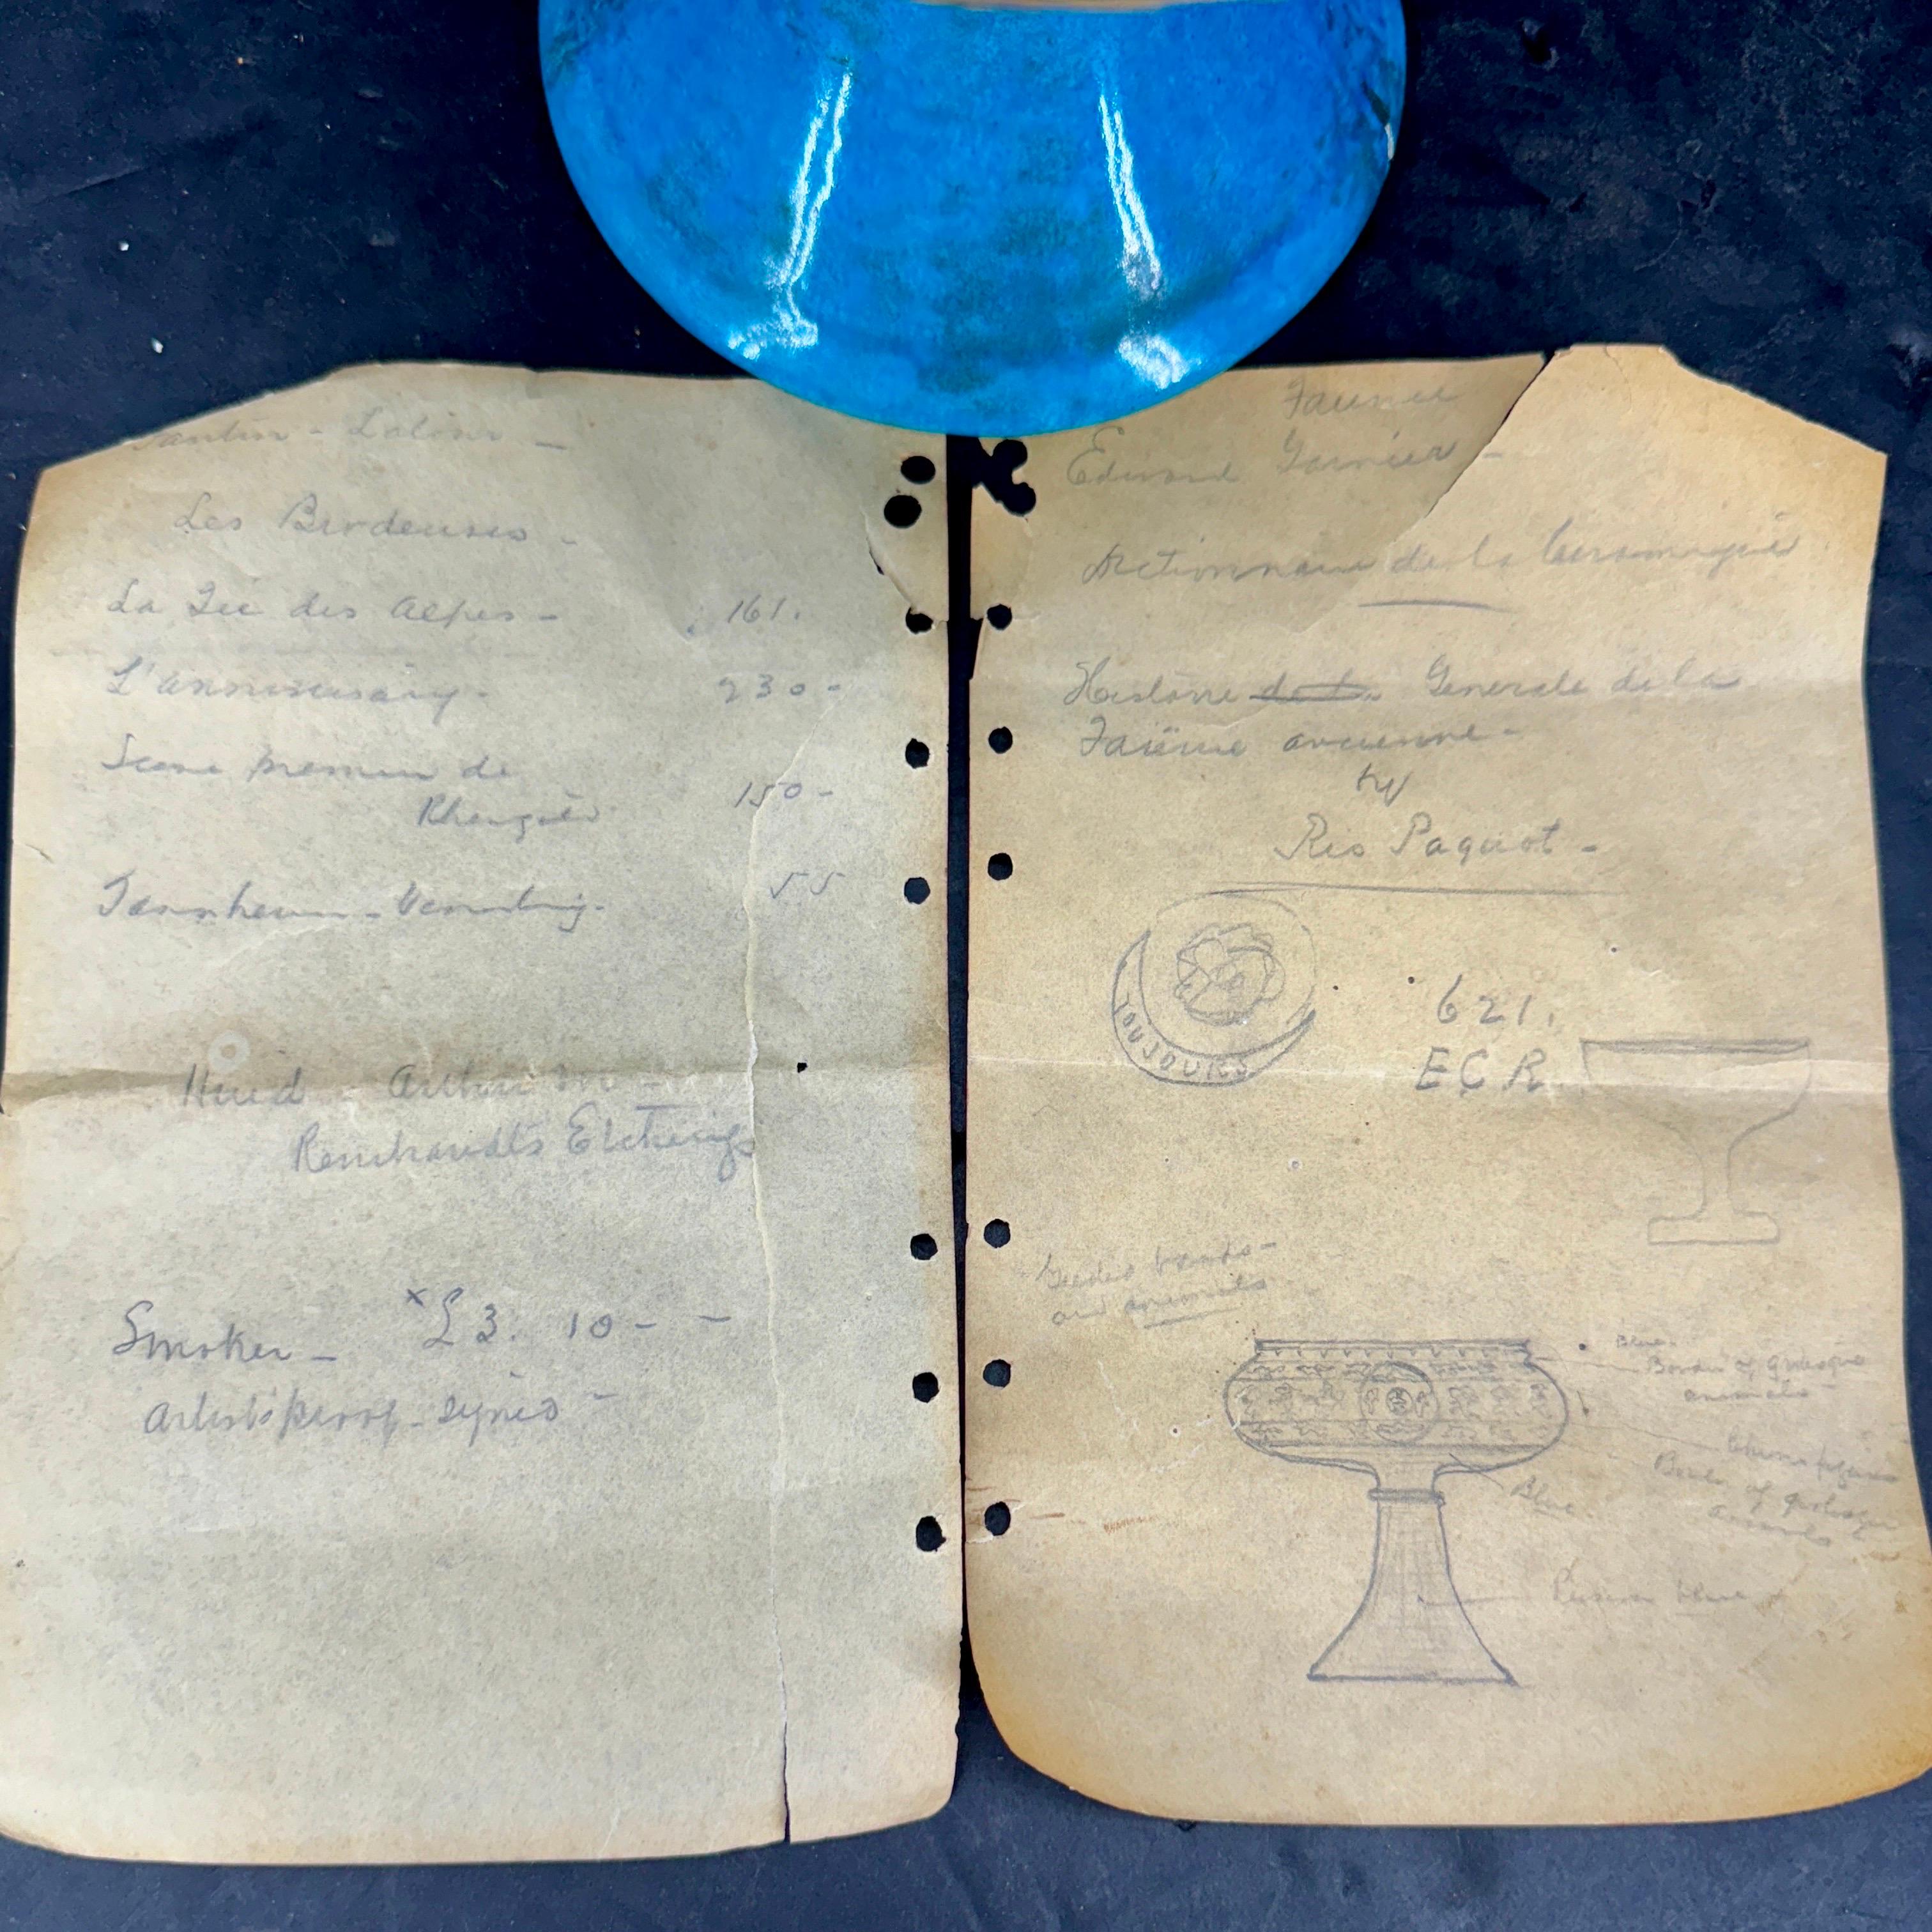 Fantin - Latour -
Les Brodeuses -
La Fée des Alpes - 161.
L'anniversary - 230 -
Scene premier de
Rheingold 150 -
Tannheuser - Venusberg. 55
Hind - Arthur M
Rembrandts Etchings
Smoker - x£3. 10 - -
Artists proof - signed -
Faience
Edward Garnier -
Dictionnaire de la Ceramique
Histoire Generale de la
Faïence ancienne -
by
Ris Paquot -
TOUJOURS
621.
ECR.
bands -
and animals
Blue -
Band of grotesque
animals
Band of grotesque
animals
Blue
Persian blue